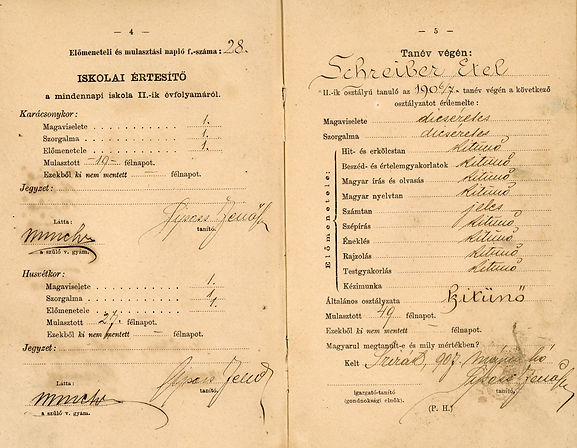 — 4 —
Előmeneteli és mulasztási napló f.-száma: 28.
ISKOLAI ÉRTESITŐ
a mindennapi iskola II.-ik évfolyamáról.
Karácsonykor:
Magaviselete . . . . . . . . . . . . 1.
Szorgalma . . . . . . . . . . . . 1.
Előmenetele . . . . . . . . . . . . 1.
Mulasztott —19— félnapot.
Ezekből ki nem mentett — félnapot.
Jegyzet:
Látta:
tanító.
a szülő v. gyám.
Husvétkor:
Magaviselete . . . . . . . . . . . . 1.
Szorgalma . . . . . . . . . . . . 1.
Előmenetele . . . . . . . . . . . . 1.
Mulasztott 27.- félnapot.
Ezekből ki nem mentett félnapot.
Jegyzet:
Látta:
tanító.
a szülő v. gyám.
— 5 —
Tanév végén:
Schreiber Etel
II.-ik osztályú tanuló az 1906/7. tanév végén a következő
osztályzatot érdemelte:
Magaviselete dicséretes
Szorgalma dicséretes
Előmenetele:
Hit- és erkölcstan kitünő
Beszéd- és értelemgyakorlatok kitünő
Magyar írás és olvasás kitünő
Magyar nyelvtan kitünő
Számtan jeles
Szépírás kitünő
Éneklés kitünő
Rajzolás kitünő
Testgyakorlás kitünő
Kézimunka
Általános osztályzata kitünő
Mulasztott 49 félnapot.
Ezekből ki nem mentett — félnapot.
Magyarul megtanolt-e és mily mértékben?
Kelt Szirák, 907. hó
igazgató-tanító
(gondnoksági elnök).
tanító.
(P. H.)